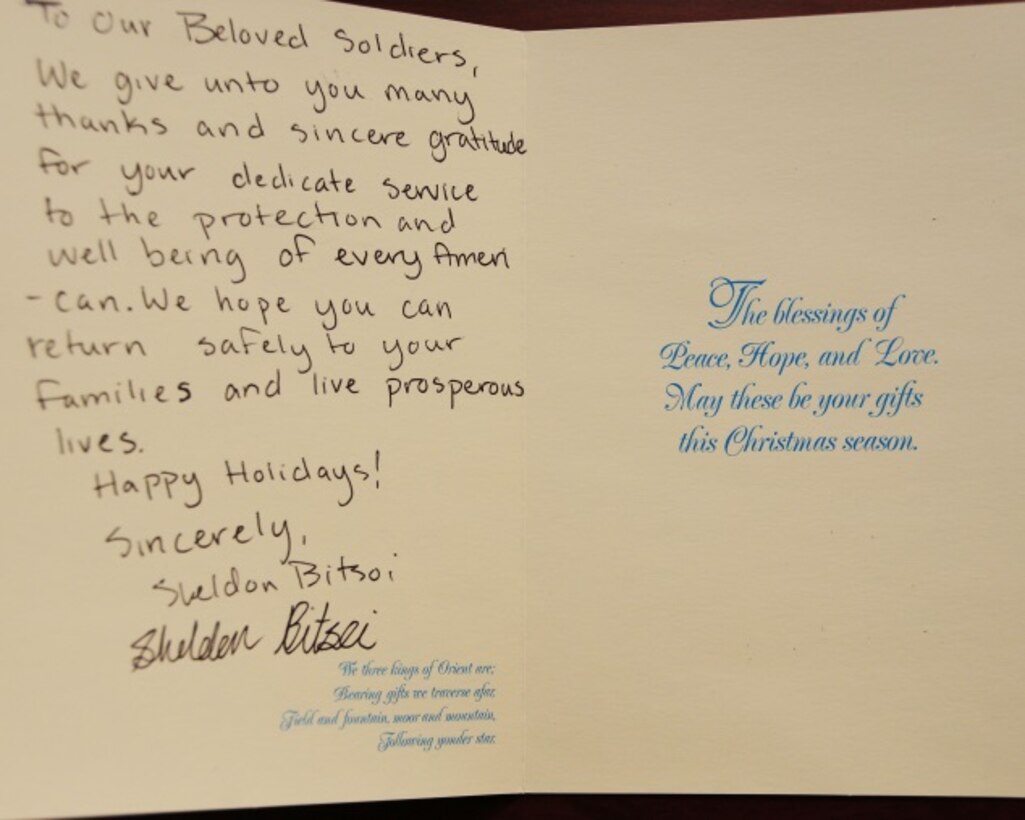 To Our Beloved Soldiers,
We give unto you many
thanks and sincere gratitude
for your dedicate service
to the protection and
well being of every Ameri
-can. We hope you can
return safely to your
families and live prosperous
lives.
Happy Holidays!
Sincerely,
Sheldon Bitsoi
Sheldon Bitsoi
We three kings of Orient are;
Bearing gifts we traverse afar,
Field and fountain, moor and mountain,
Following yonder star.
The blessings of
Peace, Hope, and Love.
May these be your gifts
this Christmas season.